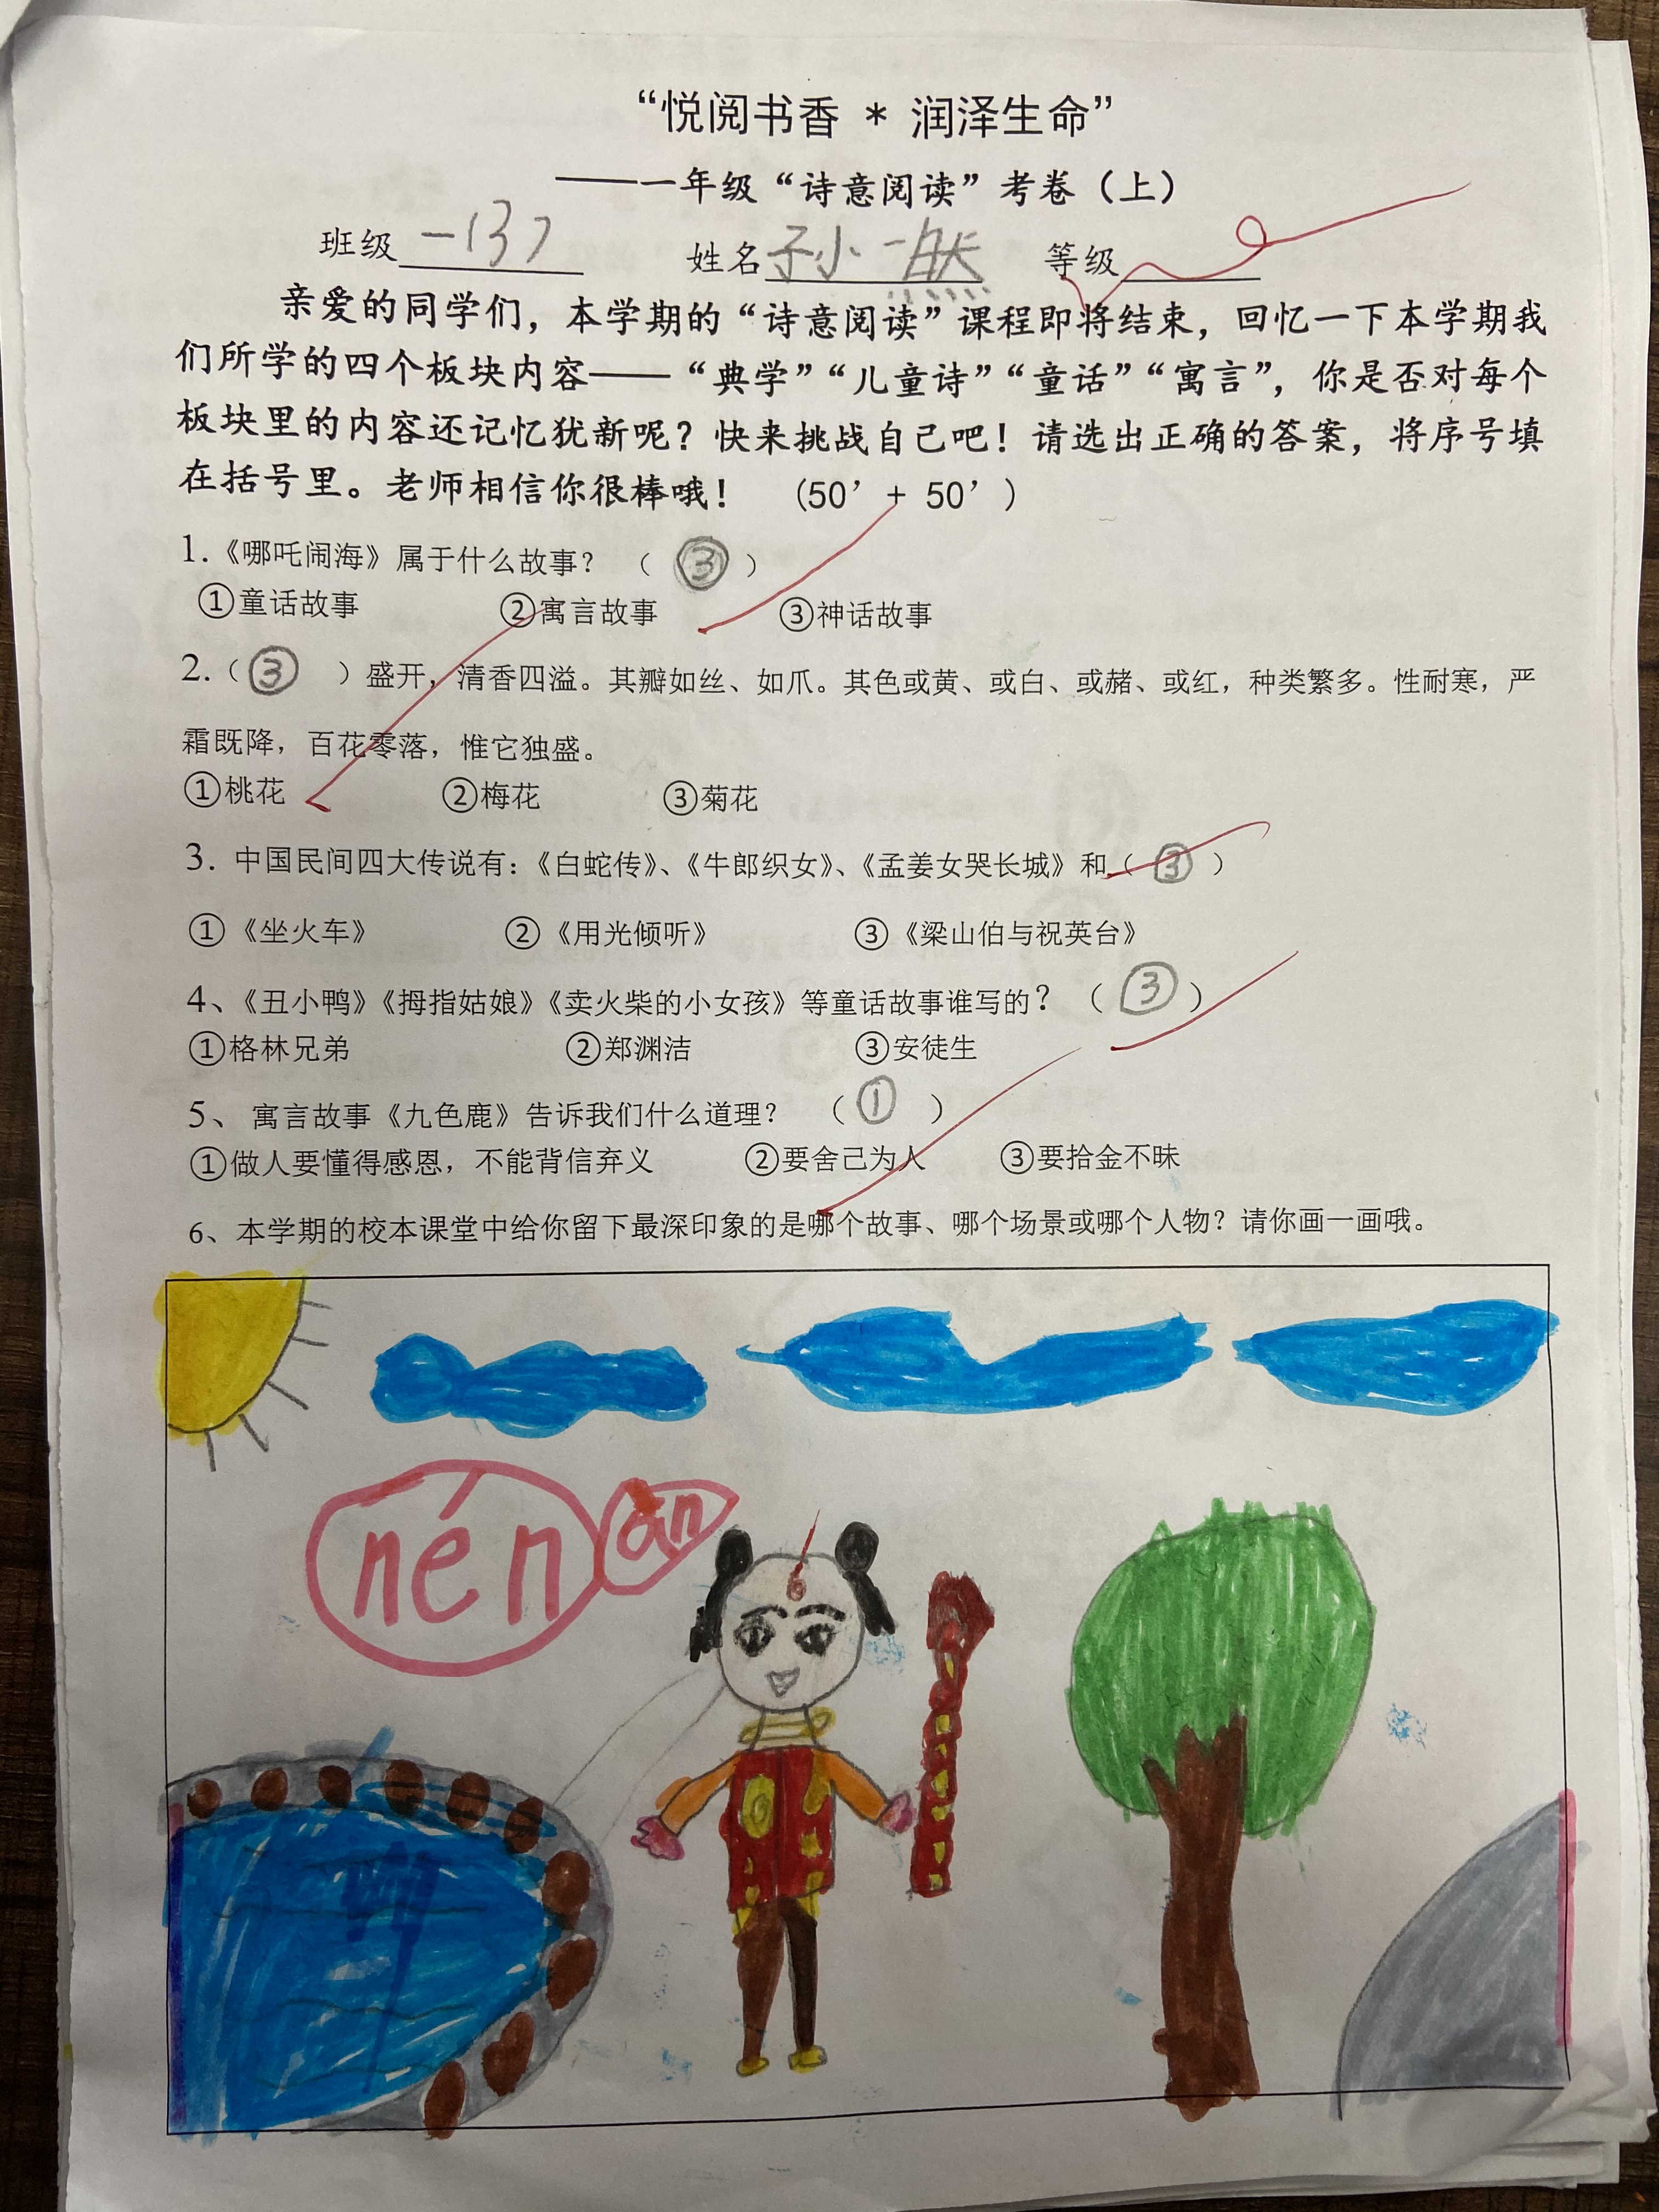 “悦阅书香 * 润泽生命”
——一年级“诗意阅读”考卷（上）
班级一(3) 姓名孙小一然 等级
亲爱的同学们，本学期的“诗意阅读”课程即将结束，回忆一下本学期我
们所学的四个板块内容——“典学”“儿童诗”“童话”“寓言”，你是否对每个
板块里的内容还记忆犹新呢？快来挑战自己吧！请选出正确的答案，将序号填
在括号里。老师相信你很棒哦！ （50’+ 50’）
1.《哪吒闹海》属于什么故事？ （ ③ ）
①童话故事 ②寓言故事 ③神话故事
2.（ ③ ）盛开，清香四溢。其瓣如丝、如爪。其色或黄、或白、或赭、或红，种类繁多。性耐寒，严
霜既降，百花零落，惟它独盛。
①桃花 ②梅花 ③菊花
3. 中国民间四大传说有：《白蛇传》、《牛郎织女》、《孟姜女哭长城》和（ ③ ）
①《坐火车》 ②《用光倾听》 ③《梁山伯与祝英台》
4、《丑小鸭》《拇指姑娘》《卖火柴的小女孩》等童话故事谁写的？（ ③ ）
①格林兄弟 ②郑渊洁 ③安徒生
5、 寓言故事《九色鹿》告诉我们什么道理？ （ ① ）
①做人要懂得感恩，不能背信弃义 ②要舍己为人 ③要拾金不昧
6、本学期的校本课堂中给你留下最深印象的是哪个故事、哪个场景或哪个人物？请你画一画哦。
nén